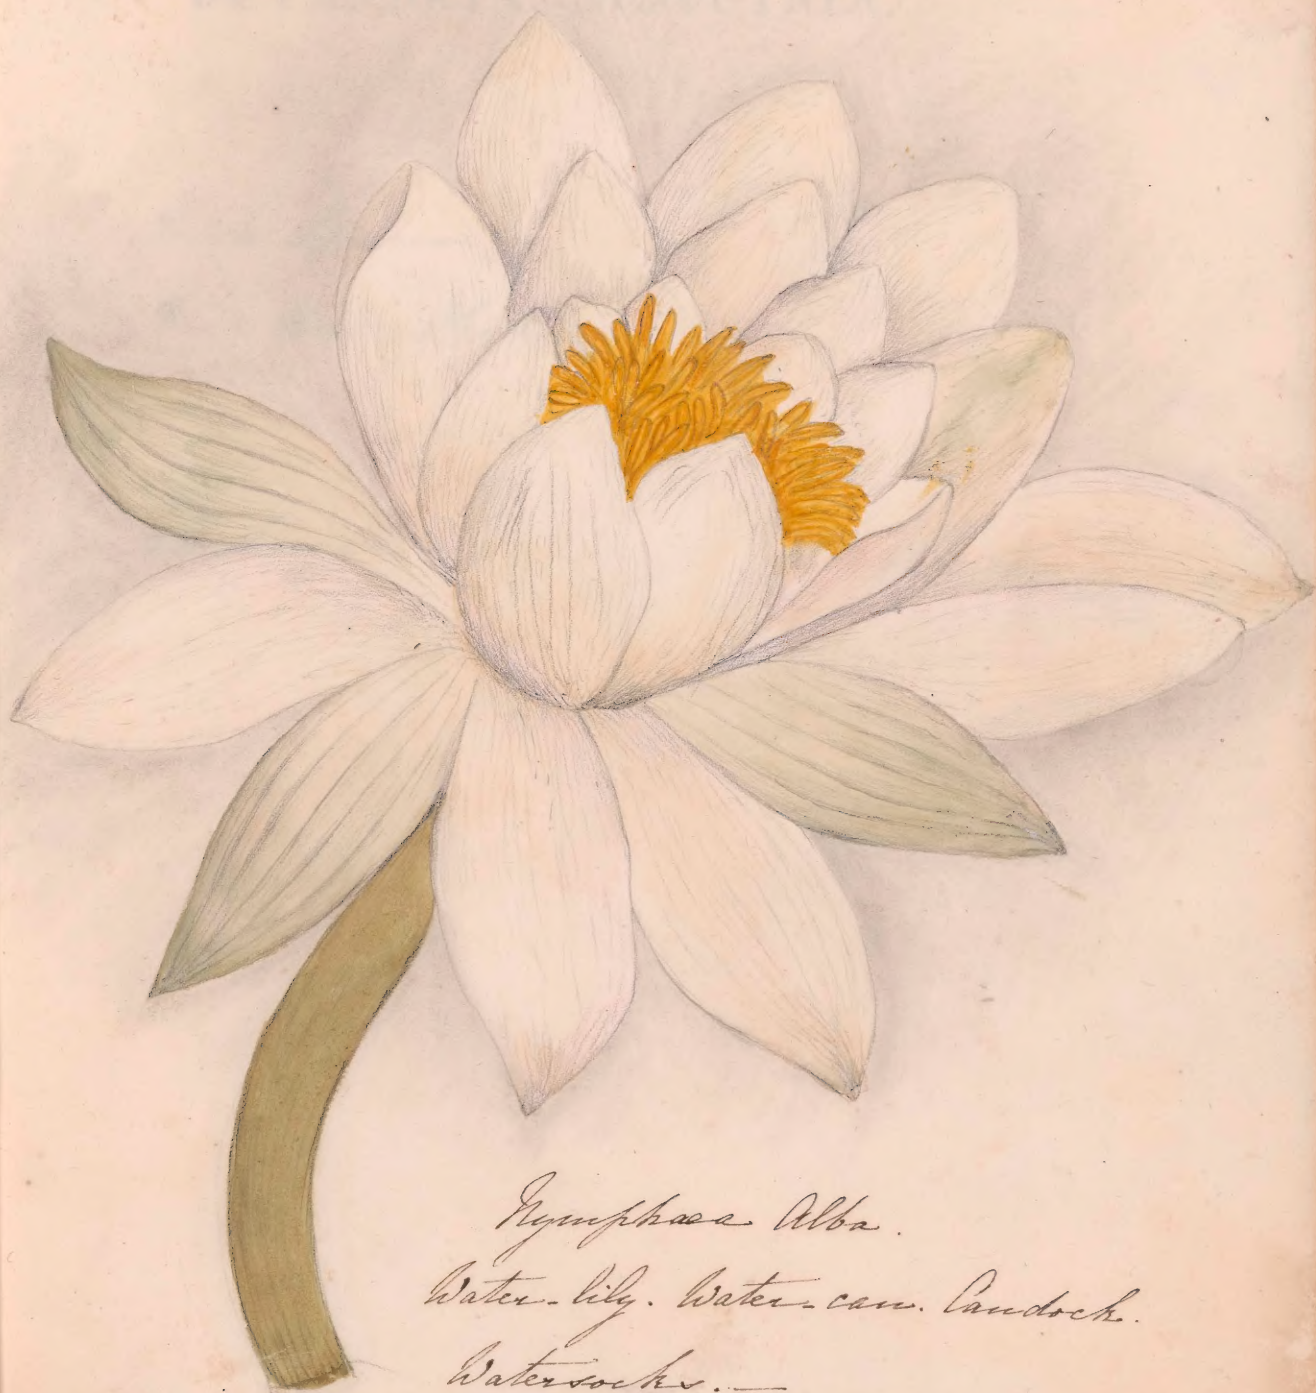 Nymphaea Alba.
Water-lily. Water-can. Candock.
Watersocks.—